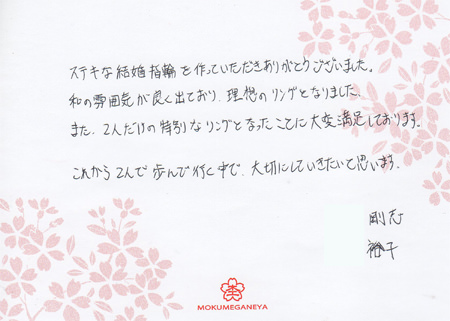 ステキな結婚指輪を作っていただきありがとうございました。
和の雰囲気が良く出ており、理想のリングとなりました。
また、2人だけの特別なリングとなったことに大変満足しております。
これから2人で歩んで行く中で、大切にしていきたいと思います。
剛志
裕子
MOKUMEGANEYA